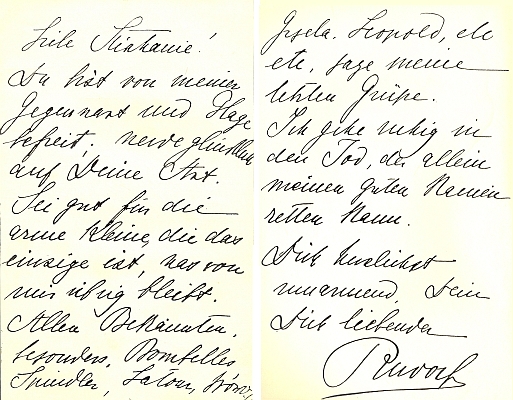 Liebe Stephanie!
Du bist von meiner
Gegenwart und Plage
befreit; werde glücklich
auf Deine Art.
Sei gut für die
arme Kleine, die das
einzige ist, was von
mir übrig bleibt.
Allen Bekannten,
besonders, Bombelles,
Spindler, Latour, Wowo,
Gisela. Leopold, etc
etc, sage meine
letzten Grüße.
Ich gehe ruhig in
den Tod, der allein
meinen guten Namen
retten kann.
Dich herzlichst
umarmend, Dein
Dich liebender
Rudolf